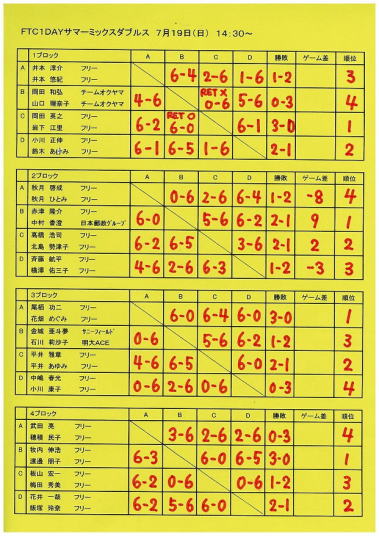 FTC1DAYサマーミックスダブルス 7月19日(日) 14:30～
1ブロック A B C D 勝敗 ゲーム差 順位
A 井本 淳介 フリー
井本 悠紀 フリー 6-4 2-6 1-6 1-2 3
B 岡田 和弘 チームオクヤマ
山口 瑠奈子 チームオクヤマ 4-6 RET X 0-6 5-6 0-3 4
C 岡田 英之 フリー
岩下 江里 フリー 6-2 RET O 6-0 6-1 3-0 1
D 小川 正伸 フリー
鈴木 あゆみ フリー 6-1 6-5 1-6 2-1 2
2ブロック A B C D 勝敗 ゲーム差 順位
A 秋月 啓成 フリー
秋月 ひとみ フリー 0-6 2-6 6-4 1-2 -8 4
B 赤津 隆介 フリー
中村 香澄 日本郵政グループ 6-0 5-6 6-2 2-1 9 1
C 高橋 浩司 フリー
北島 勢津子 フリー 6-2 6-5 3-6 2-1 2 2
D 斉藤 航平 フリー
橋澤 佑三子 フリー 4-6 2-6 6-3 1-2 -3 3
3ブロック A B C D 勝敗 ゲーム差 順位
A 尾栢 功二 フリー
花畑 めぐみ フリー 6-0 6-4 6-0 3-0 1
B 金城 亜斗夢 サニーフィールド
石川 莉沙子 明大ACE 0-6 5-6 6-2 1-2 3
C 平井 雅章 フリー
平井 あゆみ フリー 4-6 6-5 6-0 2-1 2
D 中嶋 春光 フリー
小川 康子 フリー 0-6 2-6 0-6 0-3 4
4ブロック A B C D 勝敗 ゲーム差 順位
A 武田 亮 フリー
穂積 民子 フリー 3-6 2-6 2-6 0-3 4
B 牧内 伸浩 フリー
渡邊 朋子 フリー 6-3 6-0 6-5 3-0 1
C 板山 宏一 フリー
梅田 秀美 フリー 6-2 0-6 0-6 1-2 3
D 花井 一哉 フリー
飯塚 玲奈 フリー 6-2 5-6 6-0 2-1 2